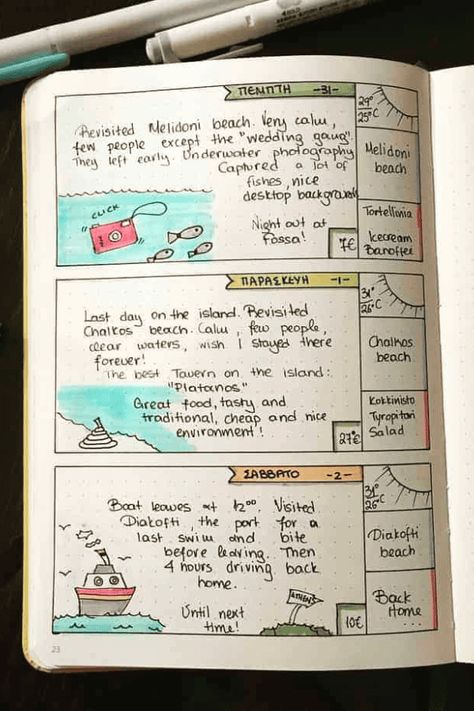 ΠΕΜΠΤΗ -31-
Revisited Melidoni beach. Very calm,
few people except the "wedding gang".
They left early. Underwater photography
Captured a lot of
fishes, nice
desktop backgrounds
CLICK
Night out at
Fossa!
7€
29°
25°C
Melidoni
beach
Tortellinia
Icecream
Banoffee
ΠΑΡΑΣΚΕΥΗ -1-
Last day on the island. Revisited
Chalkos beach. Calm, few people,
clear waters, wish I stayed there
forever!
The best Tavern on the island:
"Platanos"
Great food, tasty and
traditional, cheap and nice
environment!
27€
31°
26°C
Chalhos
beach
Kokkinisto
Tyropitari
Salad
ΣΑΒΒΑΤΟ -2-
Boat leaves at 12⁰⁰. Visited
Diakofti, the port for a
last swim and bite
before leaving. Then
4 hours driving back
home.
Until next
time!
ATHENS
10€
31°
26°C
Diakofti
beach
Back
Home
23